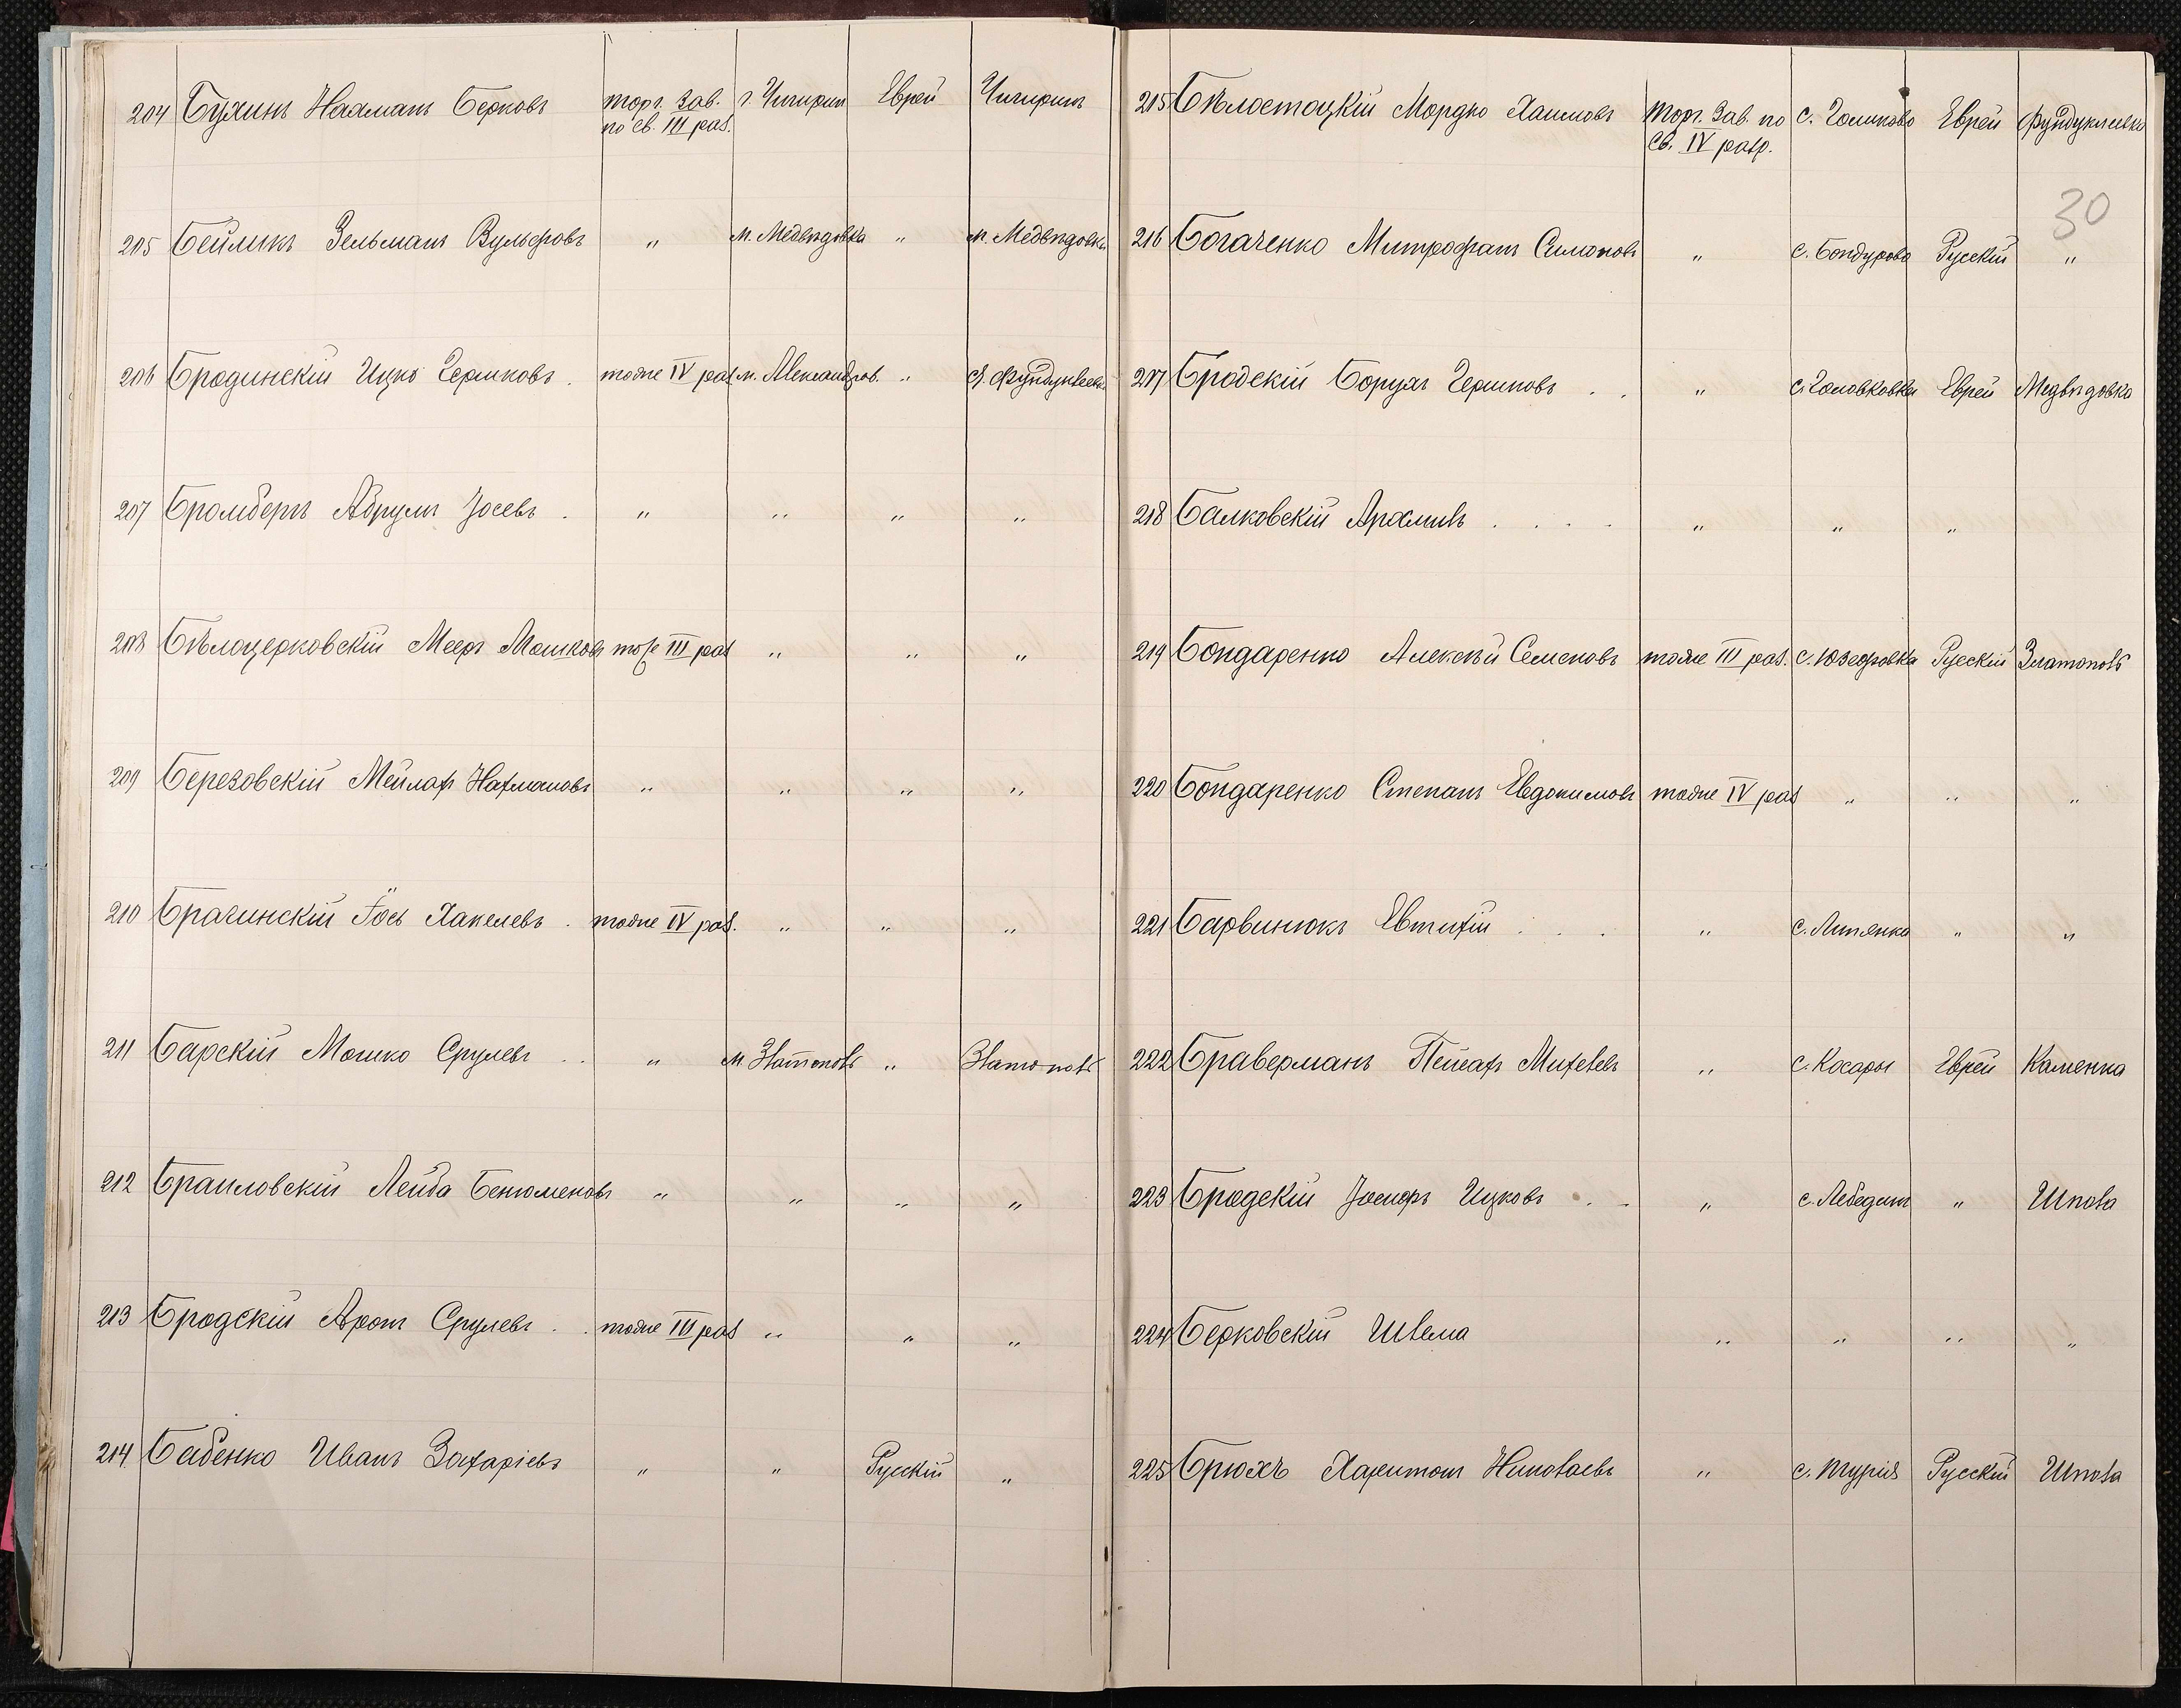 204 Бухинъ Нахманъ Берковъ торг. зав. г. Чигирин Еврей Чигиринъ
по св. III раз.
205 Бейликъ Зельманъ Вульфовъ " м. Медвѣдовка " м. Медвѣдовка
206 Бродинскій Ицко Гершковъ . тоже IV раз. м. Александров. " Фундуклеевк
207 Бромбергъ Абрумъ Іосевъ . " " " "
208 Бѣлоцерковскій Мееръ Мошковъ тоже III раз " " "
209 Березовскій Мейлах Нахмановъ " " " "
210 Брагинскій Іось Ханелевъ . тоже IV раз. " " "
211 Барскій Мошко Срулевъ . . " м. Златополь " Златополь
212 Браиловскій Лейба Бенюменовъ " " " "
213 Бродскій Аронъ Срулевъ . . тоже III раз " " "
214 Бабенко Иванъ Захаріевъ " " Русскій "
30
215 Бѣлостоцкій Мордко Хаимовъ торг. зав. по с. Голиково Еврей Фундуклеевка
св. IV разр.
216 Богаченко Митрофанъ Симоновъ " с. Бондурово Русскій "
217 Бродскій Борухъ Гершковъ . . " с. Головковка Еврей Медвѣдовка
218 Балковскій . . . . " " "
219 Бондаренко Алексѣй Семеновъ тоже III раз. с. Юзефовка Русскій Златополь
220 Бондаренко Степанъ Евдокимовъ тоже IV раз " " "
221 Барвинюкъ Евтихій . . . " с. Липянка " "
222 Браверманъ Пейсахъ Михелевъ " с. Косары Еврей Каменка
223 Бродскій Іосифъ Ицковъ . . " с. Лебединъ " Шпола
224 Берковскій Шлема " " " "
225 Брюхъ Харитонъ Николаевъ " с. Турія Русскій Шпола